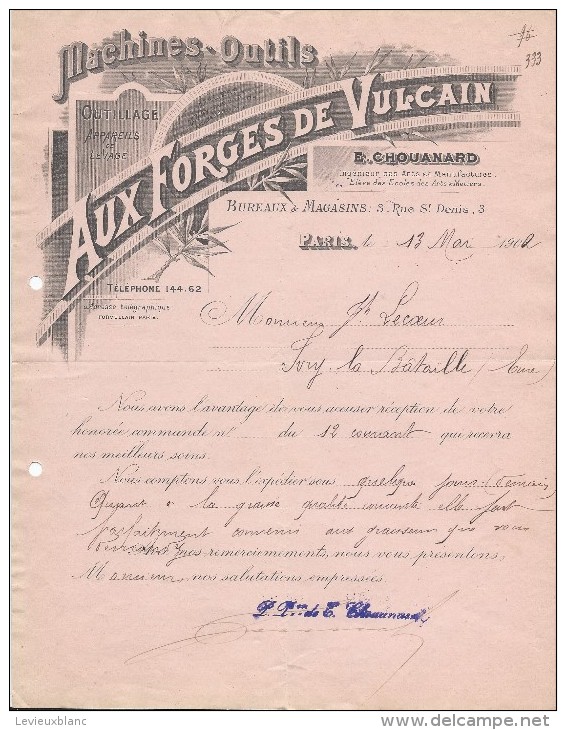 Machines-Outils
333
OUTILLAGE
APPAREILS
DE
LEVAGE
AUX FORGES DE VULCAIN
E. CHOUANARD
Ingénieur des Arts & Manufactures
Elève des Ecoles des Arts & Métiers
BUREAUX & MAGASINS: 3, Rue St Denis, 3
PARIS, le 13 Mai 1902
TÉLÉPHONE 144.62
Adresse télégraphique
Monsieur Jh Lecœur
Ivry la Bataille (Eure)
Nous avons l'avantage de vous accuser réception de votre
honorée commande no du 12 courant qui recevra
nos meilleurs soins.
Nous comptons vous l'expédier sous quelques jours (demain)
Quant à la graisse qualité courante elle fait
parfaitement aux graisseurs que vous
nos remerciements, nous vous présentons,
Monsieur, nos salutations empressées.
P. Pon de E. Chouanard
Levieuxblanc
www.delcampe.net